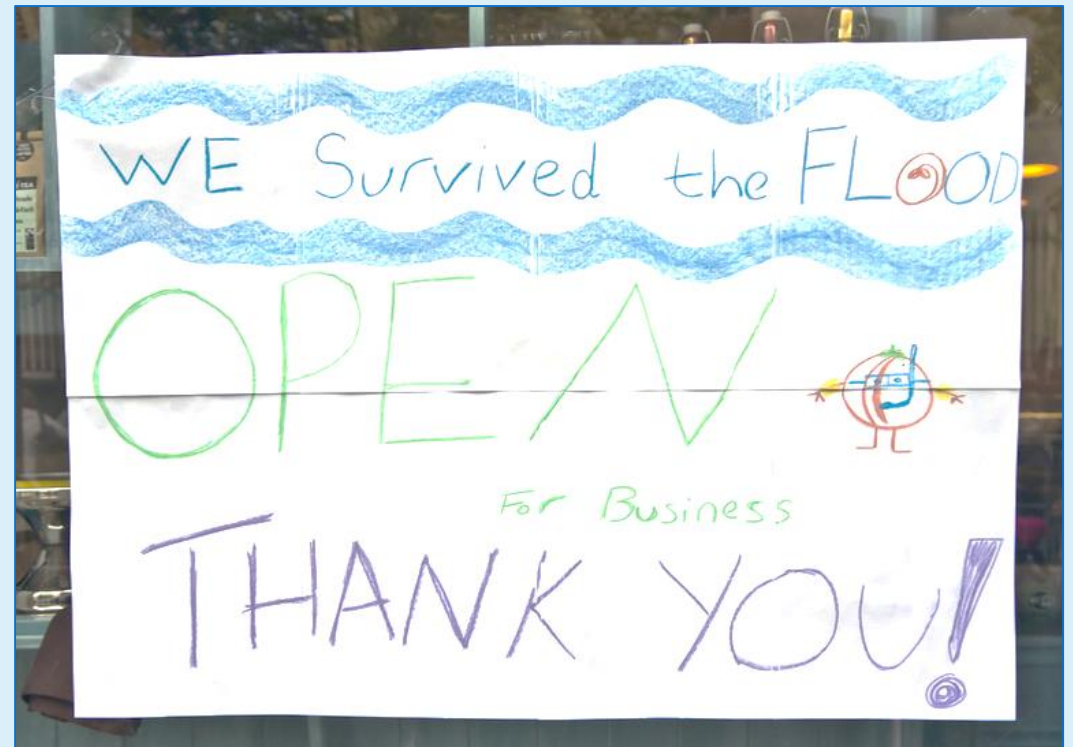 WE Survived the FLOOD
OPEN
For Business
THANK YOU!